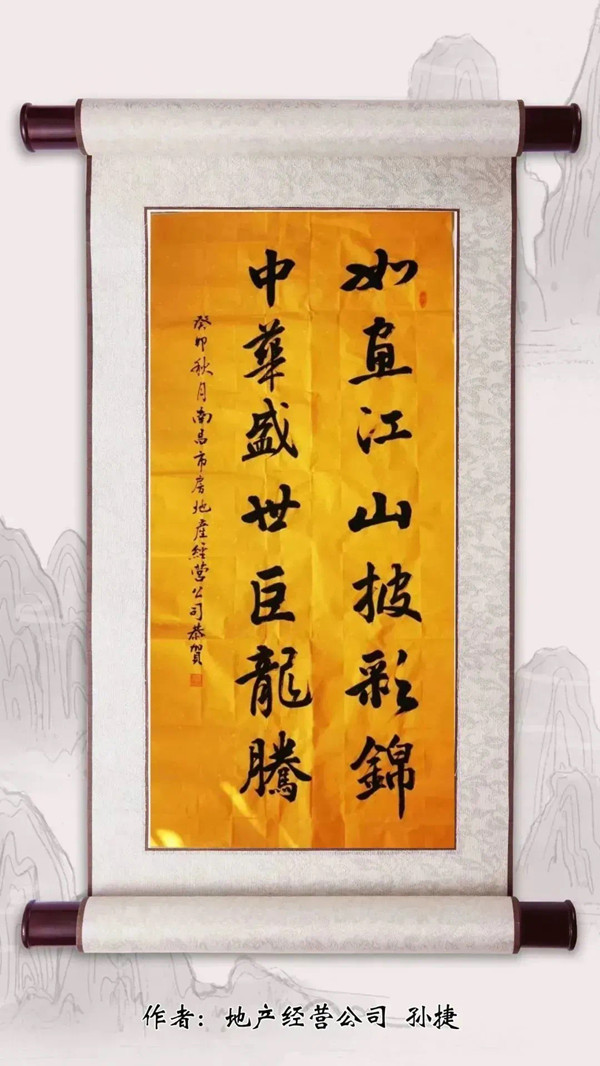 如畫江山披彩錦
中華盛世巨龍騰
癸卯秋月南昌市房地産經營公司恭賀
作者：地产经营公司 孙捷